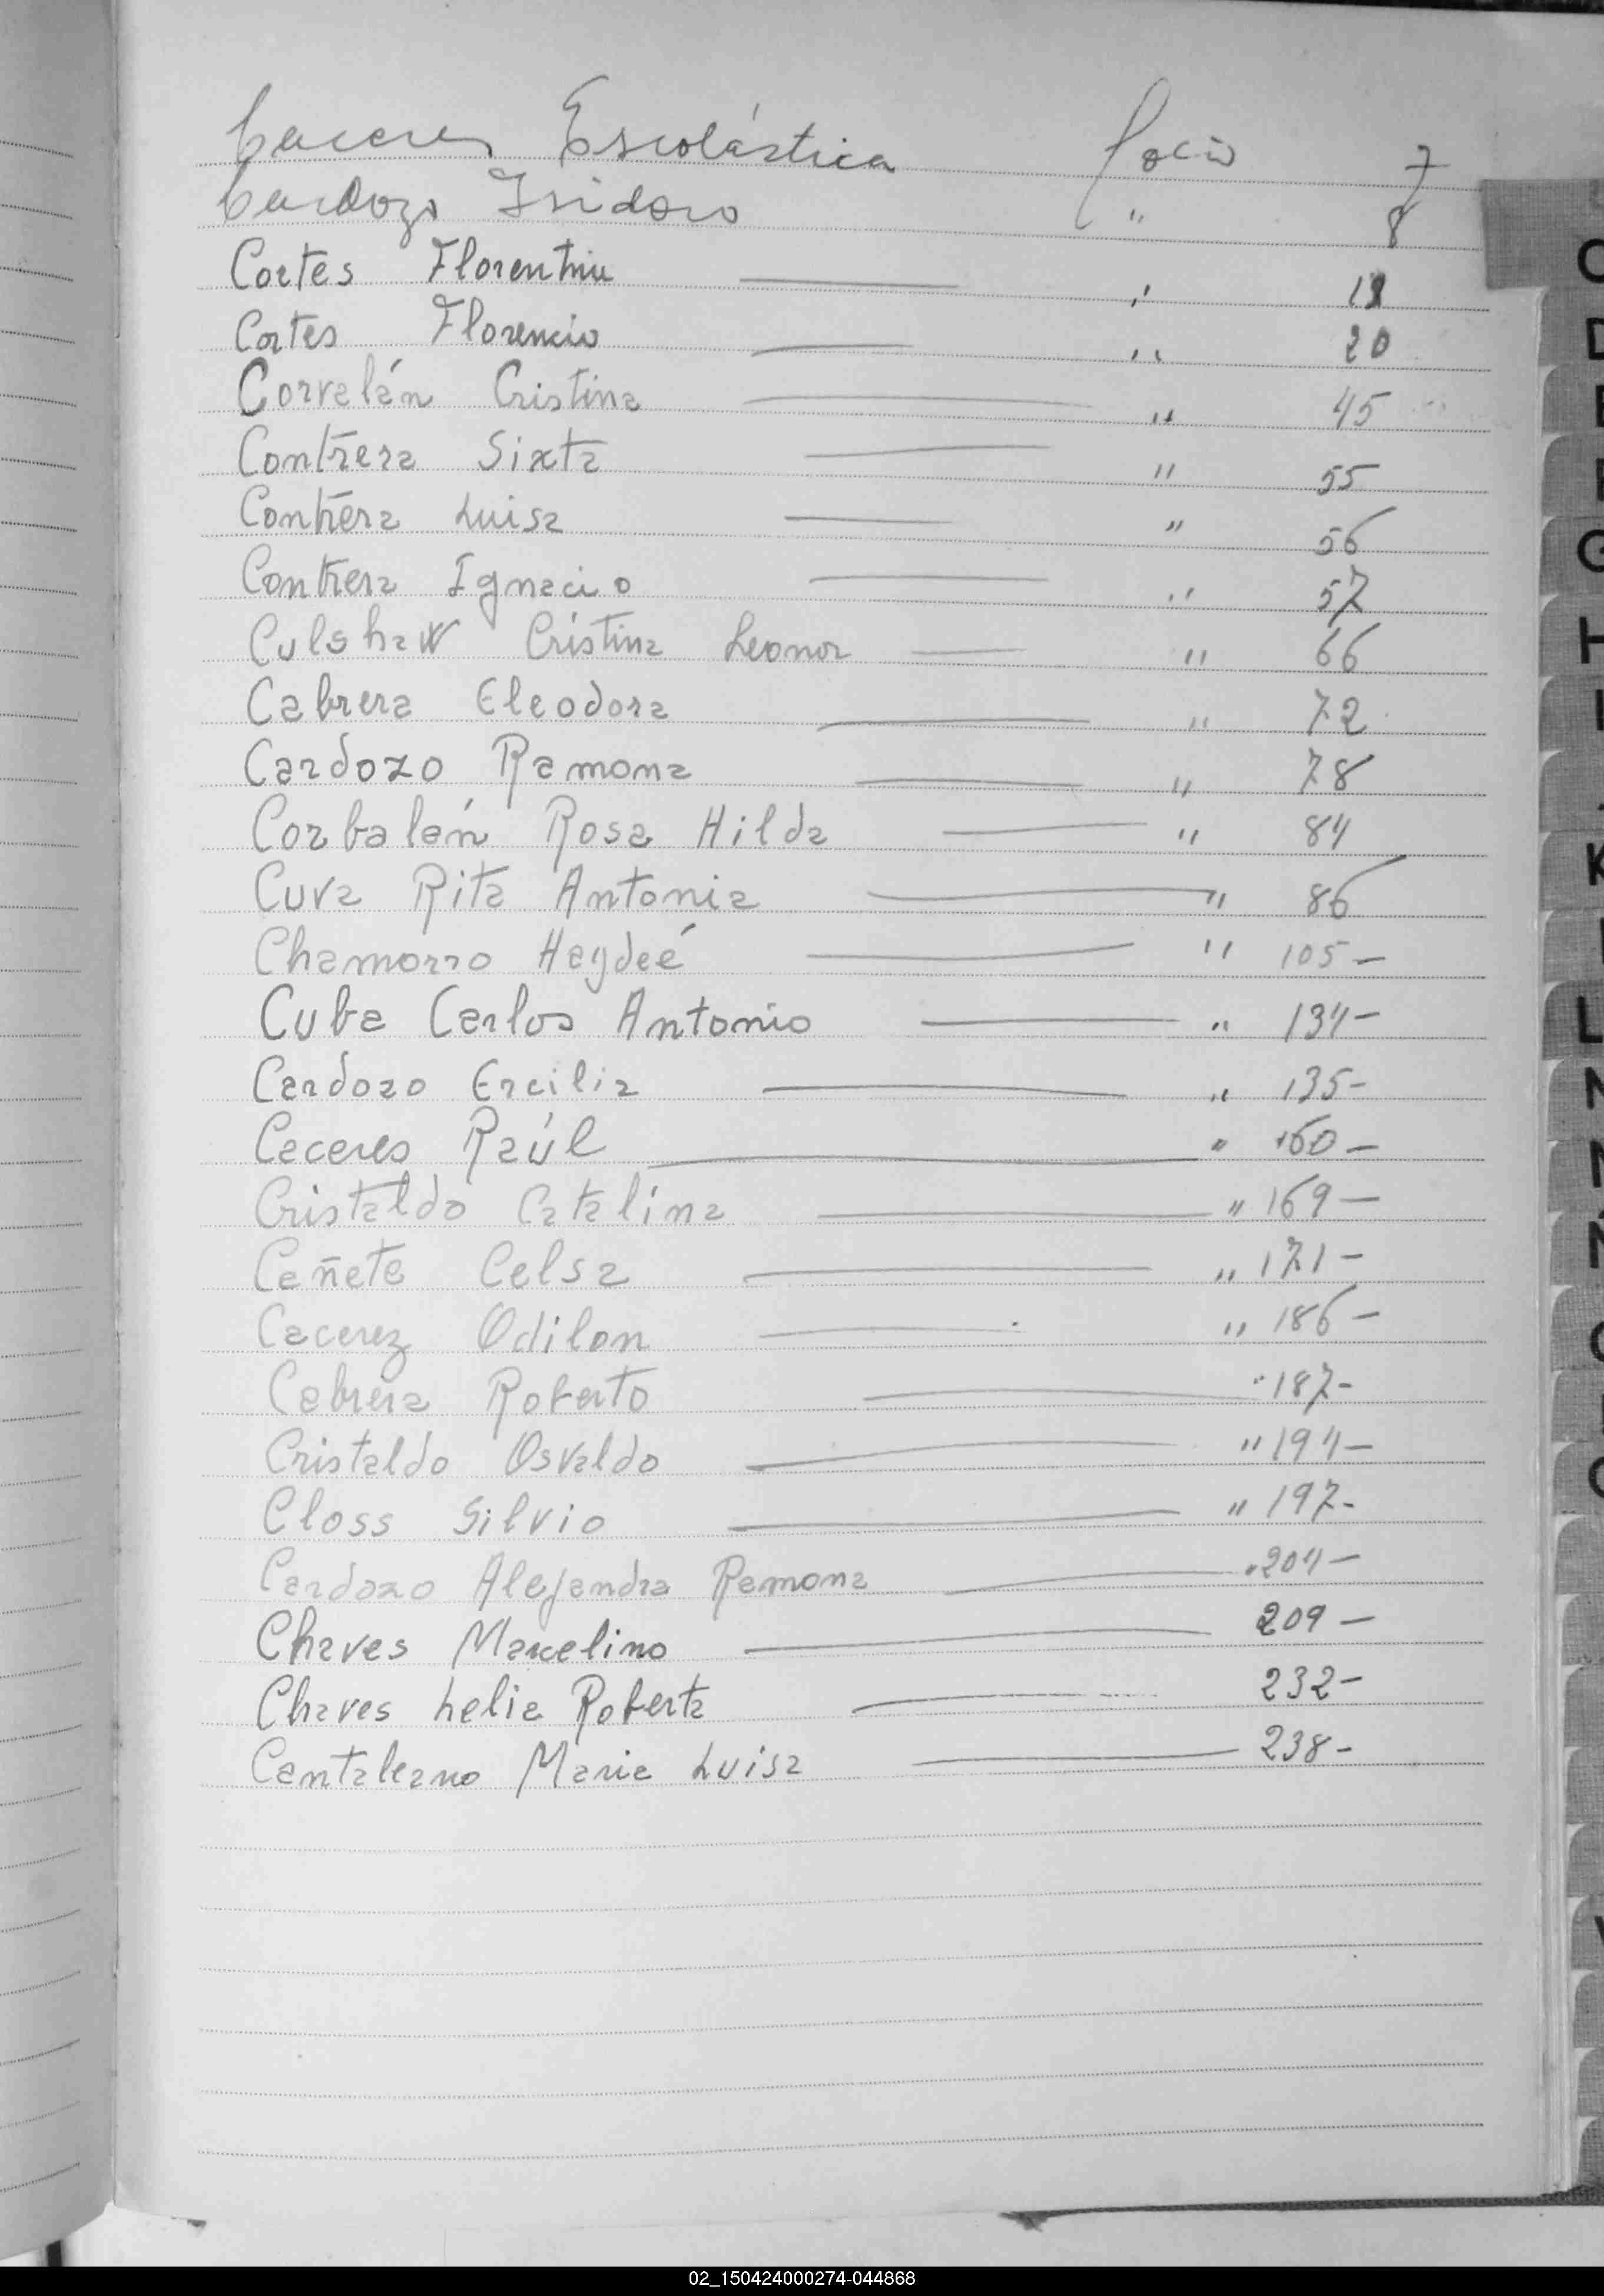 Caceres Escolástica Socio 7
Cardozo Isidoro " 8
Cortes Florentina " 18
Cortes Florencio " 20
Corvalán Cristina " 45
Contrera Sixta " 55
Contrera Luisa " 56
Contrera Ignacio " 57
Culshaw Cristina Leonor " 66
Cabrera Eleodora " 72
Cardozo Ramona " 78
Corbalán Rosa Hilda " 84
Cuva Rita Antonia " 86
Chamorro Haydeé " 105-
Cuba Carlos Antonio " 134-
Cardozo Ercilia " 135-
Caceres Raúl " 160-
Cristaldo Catalina " 169-
Cañete Celsa " 171-
Cacerez Odilon " 186-
Cabrera Roberto " 187-
Cristaldo Osvaldo " 194-
Closs Silvio " 197-
Cardozo Alejandra Ramona " 204-
Chaves Marcelino 209-
Chaves Lelia Roberta 232-
Cantaleano Maria Luisa 238-
C
D
E
G
H
I
K
L
N
Ñ
02_150424000274-044868